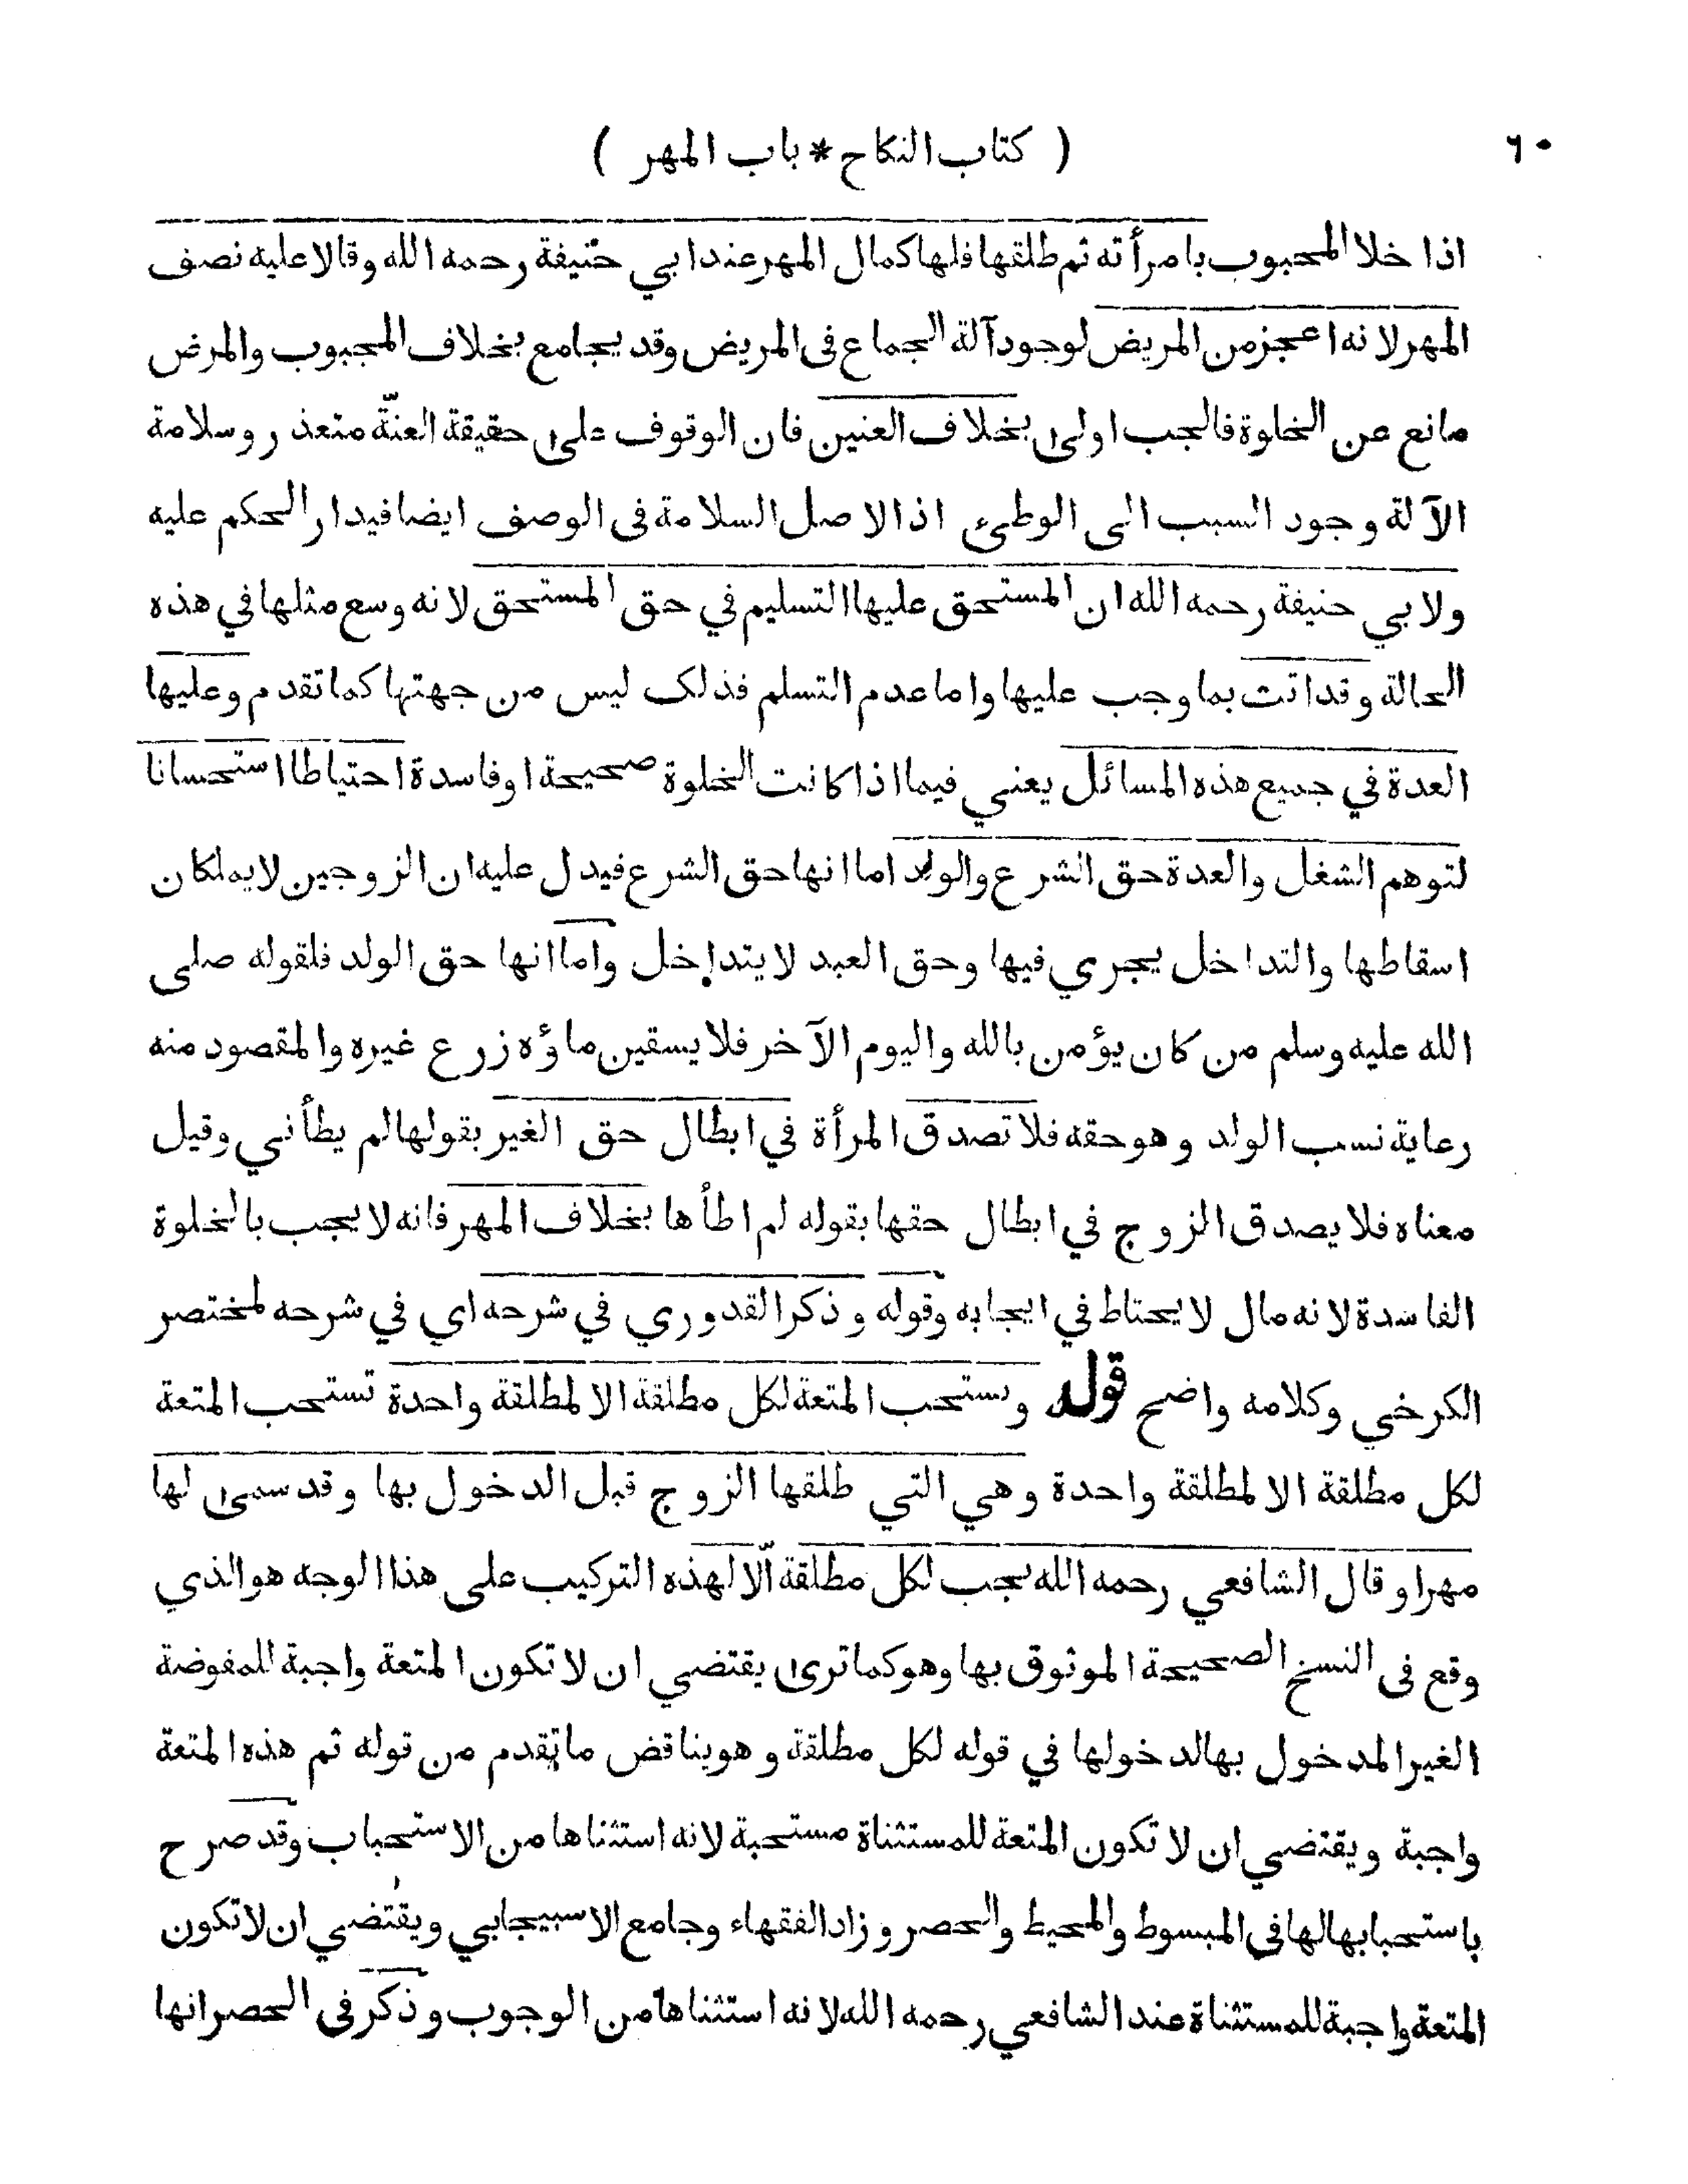 ٦٠
( كتاب النكاح * باب المهر )
اذا خلا المجبوب بامرأته ثم طلقها فلها كمال المهر عند ابي حنيفة رحمه الله وقالا عليه نصف
المهر لانه اعجز من المريض لوجود آلة الجماع فى المريض وقد يجامع بخلاف المجبوب والمرض
مانع عن الخلوة فالجب اولى بخلاف العنين فان الوقوف على حقيقة العنّة متعذر وسلامة
الآلة وجود السبب الى الوطىء اذ الاصل السلامة فى الوصف ايضا فيدار الحكم عليه
ولابي حنيفة رحمه الله ان المستحق عليها التسليم في حق المستحق لانه وسع مثلها في هذه
الحالة وقد اتت بما وجب عليها واما عدم التسلم فذلك ليس من جهتها كما تقدم وعليها
العدة في جميع هذه المسائل يعني فيما اذا كانت الخلوة صحيحة او فاسدة احتياطا استحسانا
لتوهم الشغل والعدة حق الشرع والولد اما انها حق الشرع فيدل عليه ان الزوجين لا يملكان
اسقاطها والتداخل يجري فيها وحق العبد لا يتداخل واما انها حق الولد فلقوله صلى
الله عليه وسلم من كان يؤمن بالله واليوم الآخر فلا يسقين ماؤه زرع غيره والمقصود منه
رعاية نسب الولد وهو حقه فلا تصدق المرأة في ابطال حق الغير بقولها لم يطأني وقيل
معناه فلا يصدق الزوج في ابطال حقها بقوله لم اطأها بخلاف المهر فانه لا يجب بالخلوة
الفاسدة لانه مال لا يحتاط في ايجابه وقوله وذكر القدوري في شرحه اي في شرحه لمختصر
الكرخي وكلامه واضح قوله وتستحب المتعة لكل مطلقة الا لمطلقة واحدة تستحب المتعة
لكل مطلقة الا لمطلقة واحدة وهي التي طلقها الزوج قبل الدخول بها وقد سمى لها
مهرا وقال الشافعي رحمه الله يجب لكل مطلقة الّا لهذه التركيب على هذا الوجه هو الذي
وقع فى النسخ الصحيحة الموثوق بها وهو كما ترى يقتضي ان لا تكون المتعة واجبة للمفوضة
الغير المدخول بها لدخولها في قوله لكل مطلقة وهو يناقض ما تقدم من قوله ثم هذه المتعة
واجبة ويقتضي ان لا تكون المتعة للمستثناة مستحبة لانه استثناها من الاستحباب وقد صرح
باستحبابها لها في المبسوط والمحيط والحصر وزاد الفقهاء وجامع الاسبيجابي ويقتضي ان لا تكون
المتعة واجبة للمستثناة عند الشافعي رحمه الله لانه استثناها من الوجوب وذكر فى الحصر انها